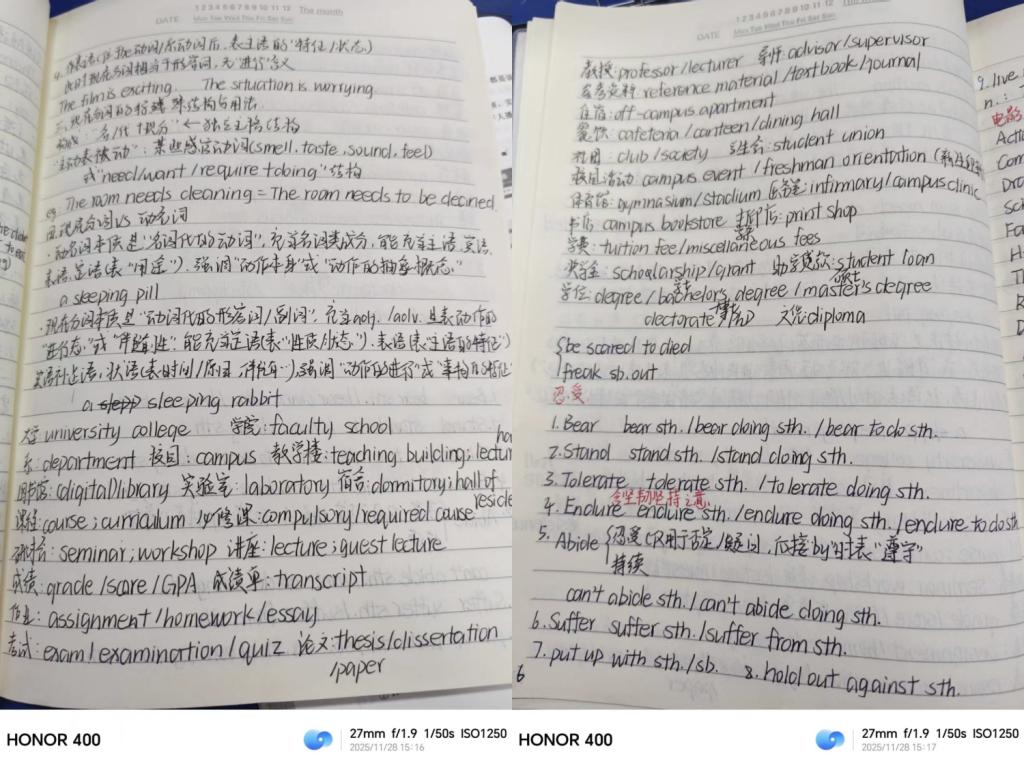 1 2 3 4 5 6 7 8 9 10 11 12 The month
DATE Mon Tue Wed Thu Fri Sat Sun
4. 作表语：位于be动词/系动词后，表主语的"特征/状态"
此时现在分词相当于形容词，无"进行"含义
The film is exciting. The situation is worrying
三.现在分词的特殊结构与用法
"名/代+现分" ← 独立主格结构
"主动表被动"：某些感官动词(smell, taste, sound, feel)
或"need/want/require to being"结构
eg. The room needs cleaning = The room needs to be cleaned.
四.现在分词VS 动名词
·动名词本质是"名词代的动词"，充当名词类成分，能充当主语、宾语、
表语、定语(表"用途")，强调"动作本身"或"动作的抽象概念."
a sleeping pill
·现在分词本质是"动词代的形容词/副词"，充当adj./adv.且表动作的
"进行态"或"伴随性"，能充当定语(表"性质/状态")、表语(表"主语的特征")
宾语补足语，状语(表时间/原因 伴随…)，强调"动作的进行"或"事物的特征"
a sleeping rabbit
大学 university college 学院: faculty school
系: department 校园: campus 教学楼: teaching building; lecture
图书馆: (digital) library 实验室: laboratory 宿舍: dormitory; hall of
课程: course; curriculum 必修课: compulsory/required course
研讨会: seminar; workshop 讲座: lecture; guest lecture
成绩: grade/score/GPA 成绩单: transcript
作业: assignment/homework/essay
考试: exam/examination/quiz 论文: thesis/dissertation
/paper
HONOR 400
27mm f/1.9 1/50s ISO1250
2025/11/28 15:16
1 2 3 4 5 6 7 8 9 10 11 12 The month
DATE Mon Tue Wed Thu Fri Sat Sun
教授: professor/lecturer 导师 advisor/supervisor
参考资料 reference material/textbook/journal
住宿: off-campus apartment
餐饮: cafeteria/canteen/dining hall
社团: club/society 学生会: student union
校园活动 campus event/freshman orientation
体育馆: gymnasium/stadium 医务室 infirmary/campus clinic
书店 campus bookstore 打印店: print shop
学费: tuition fee/miscellaneous fees 杂费
奖学金: scholarship/grant 助学贷款: student loan
学位: degree/bachelor's degree/master's degree 学士 硕士
doctorate 博士 文凭: diploma
be scared to died
freak sb. out
忍受
1. Bear bear sth./bear doing sth./bear to do sth.
2. Stand stand sth./stand doing sth.
3. Tolerate tolerate sth./tolerate doing sth.
含坚韧坚持之意
4. Endure endure sth./endure doing sth./endure to do sth
5. Abide 忍受(只用于否定/疑问，后接by时表"遵守"
持续
can't abide sth./can't abide doing sth.
6. Suffer suffer sth./suffer from sth.
7. put up with sth./sb. 8. hold out against sth.
6
9. live
n.:
电影
HONOR 400
27mm f/1.9 1/50s ISO1250
2025/11/28 15:17